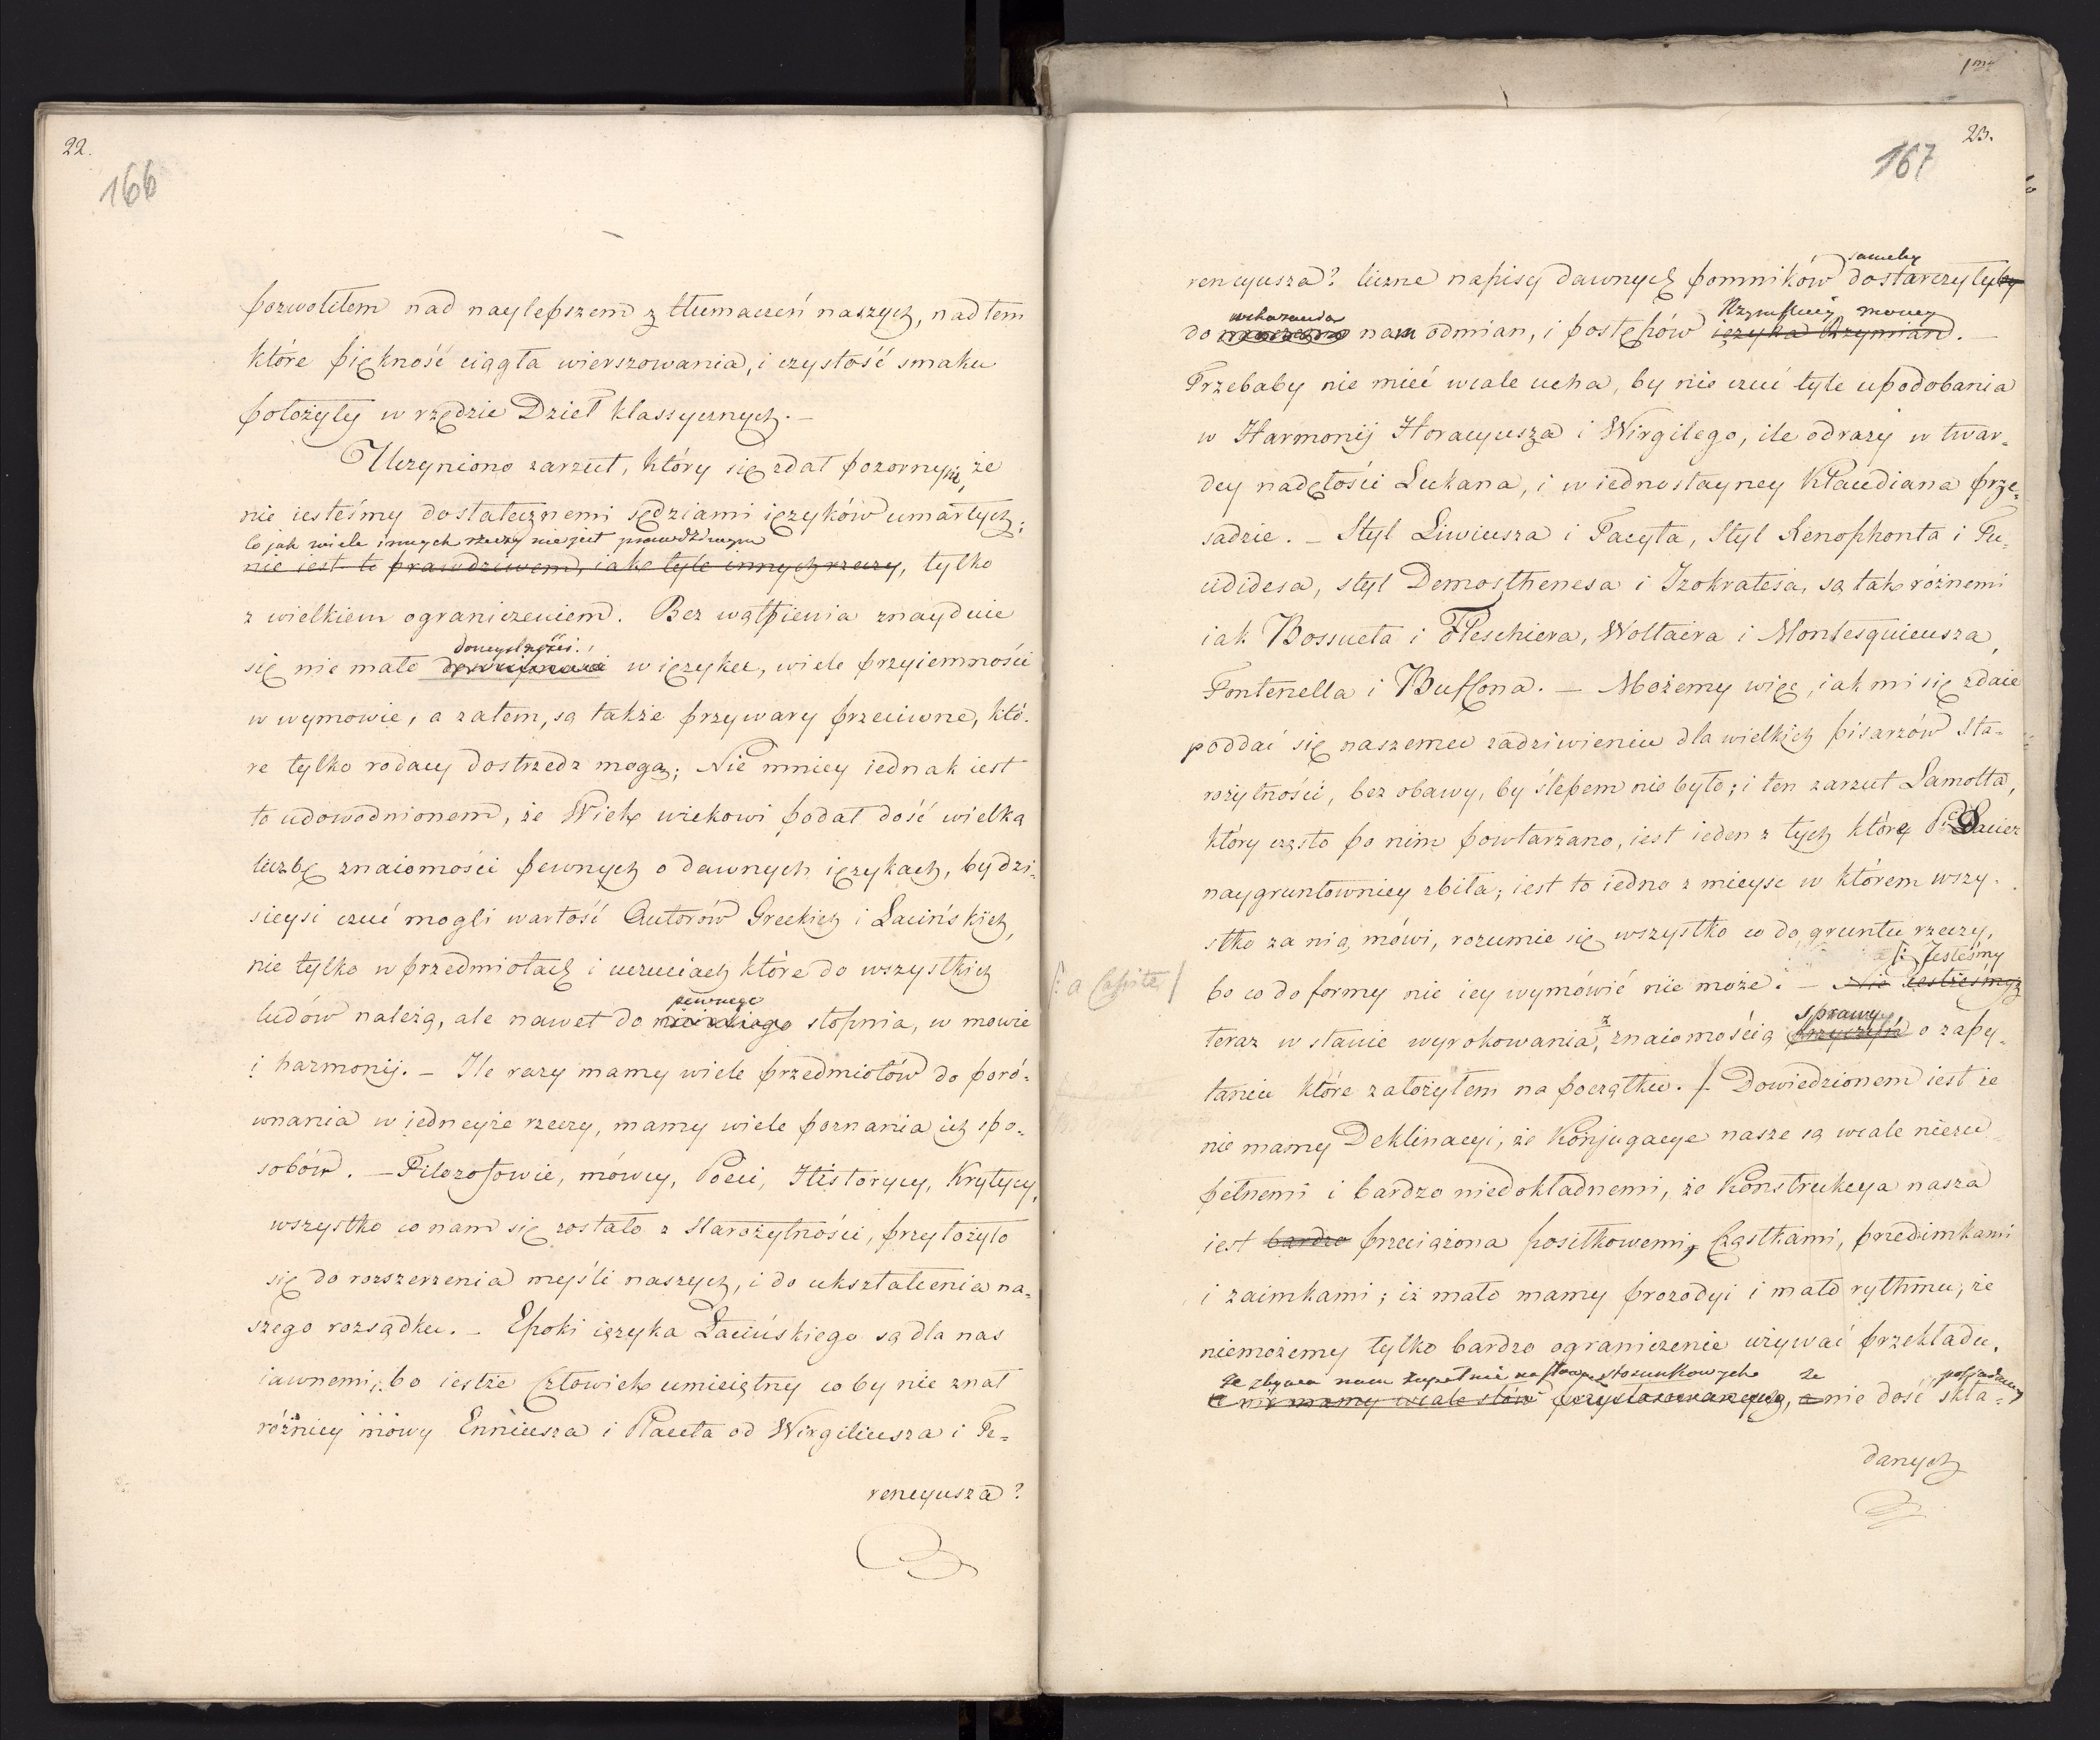 22.
166
pozwolitem nad naylepszem z tłumaczeń naszych, nad tem
które piękność ciągła wierszowania, i czystość smaku
położyły w rzędzie Dzieł klassycznych. —
Uczyniono zarzut, który się zdał pozornym, że
nie iesteśmy dostatecznemi sędziami ięzyków umarłych;
to jak wiele innych rzeczy nie jest prawdziwym
nie iest to prawdziwem, iak tyle innych rzeczy, tylko
z wielkiem ograniczeniem. Bez wątpienia znayduie
domyślności
się nie mało w ięzyku, wiele przyiemności
w wymowie, a zatem, są także przywary przeciwne, któ-
re tylko rodacy dostrzedz mogą; Nie mniey iednak iest
to udowodnionem, że Wiek wiekowi podał dość wielką
liczbę znaiomości pewnych o dawnych ięzykach, by dzi-
sieysi czuć mogli wartość Autorów Greckich i Łacińskich,
nie tylko w przedmiotach i uczuciach które do wszystkich
pewnego
ludów należą, ale nawet do niejakiego stopnia, w mowie
i harmonij. — Ile razy mamy wiele przedmiotów do poró-
wnania w iedneyże rzeczy, mamy wiele poznania ich spo-
sobów. — Filozofowie, mówcy, Poeci, Historycy, Krytycy,
wszystko co nam się zostało z Starożytności, przyłożyło
się do rozszerzenia myśli naszych, i do ukształcenia na-
szego rozsądku. — Epoki ięzyka Łacińskiego są dla nas
iawnemi; bo iestże Człowiek umieiętny co by nie znał
różnicy mowy Enniusza i Plauta od Wirgiliusza i Te-
rencyusza?
1my
23.
167
sameby
rencyusza? liczne napisy dawnych pomników dostarczyłyby
wskazania Rzymskiey mowy
do nam odmian, i postępów ięzyka Rzymian. —
Trzebaby nie mieć wcale ucha, by nie czuć tyle upodobania
w Harmonij Horacyusza i Wirgilego, ile odrazy w twar-
dey nadętości Lukana, i w iednostayney Klaudiana prze-
sadzie. — Styl Liwiusza i Tacyta, Styl Xenophonta i Tu-
cididesa, styl Demosthenesa i Izokratesa, są tak różnemi
iak Bossueta i Fleschiera, Woltaira i Montesquieusza,
Fontenella i Buffona. — Możemy więc, iak mi się zdaie
poddać się naszemu zadziwieniu dla wielkich pisarzów Sta-
rożytności, bez obawy, by ślepem nie było; i ten zarzut Lamotta,
który często po nim powtarzano, iest ieden z tych które Pni Dacier
naygruntowniey zbiła; iest to iedno z mieysc w którem wszy-
stko za nią mówi, rozumie się wszystko co do gruntu rzeczy,
Jesteśmy
/: a Capite / bo co do formy nie iey wymówić nie może. — Nie Jestześmyż
z sprawy
teraz w stanie wyrokowania, znaiomością przyczyn o zapy-
taniu które założyłem na początku. /. Dowiedzionem iest że
nie mamy Deklinacyi, że Konjugacye nasze są wcale niezu-
pełnemi i bardzo niedokładnemi, że Konstrukcya nasza
iest bardzo przeciążona posiłkowemi, Cząstkami, przedimkami
i zaimkami; iż mało mamy prozodyi i mało rythmu, że
niemożemy tylko bardzo ograniczenie używać przekładu,
że zbywa nam zupełnie na słowach stosunkowych że posiadamy
i nie mamy wcale słów przystosowanych, a nie dość skła-
danych